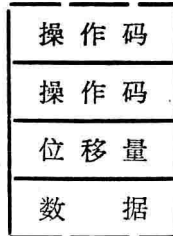 操作码
操作码
位移量
数据